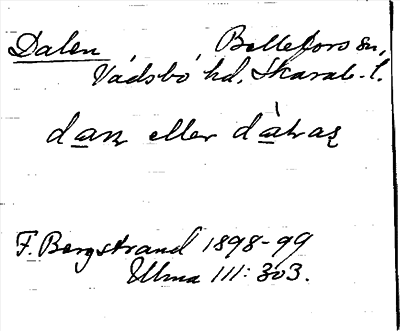 Dalen Bellefors sn,
Vadsbo hd, Skarab. l.
dan eller
F. Bergstrand 1898-99
Ulma 111: 303.